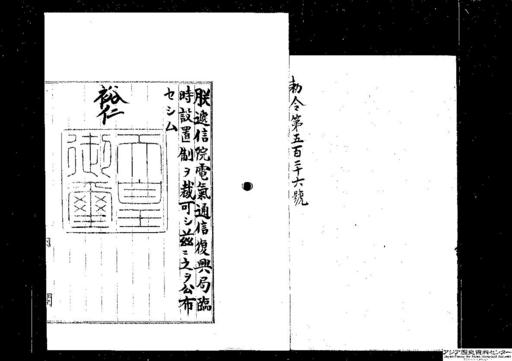 勅令第五百二十六號
朕遞信院電氣通信復興局臨
時設置制ヲ裁可シ茲ニ之ヲ公布
セシム
裕仁
天皇
御璽
内
閣
アジア歴史資料センター